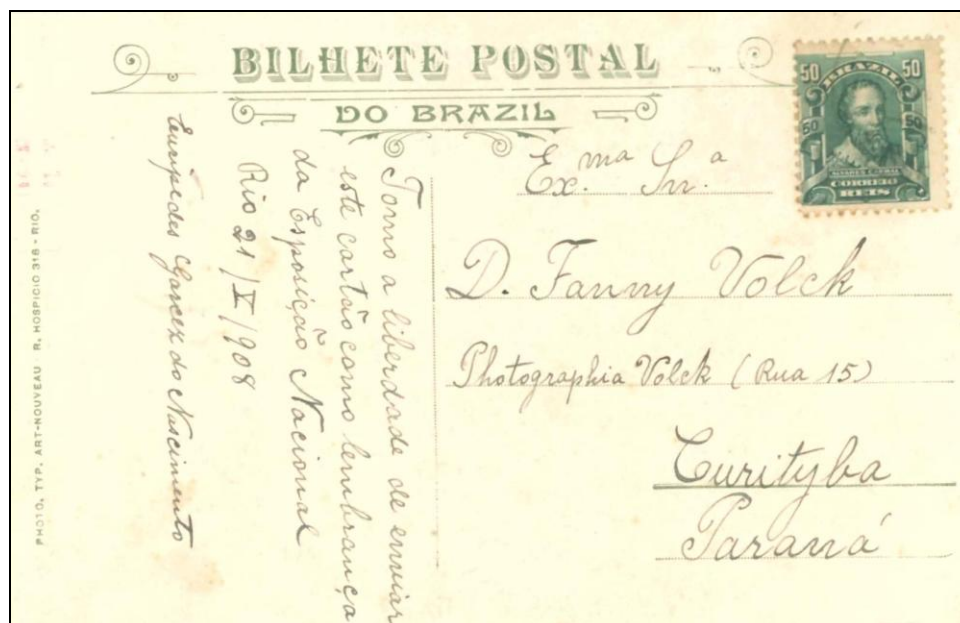 BILHETE POSTAL
DO BRAZIL
50 BRAZIL 50
50 50
CORREIO
REIS
Ex.ma Snr.a
D. Fanny Volck
Photographia Volck (Rua 15)
Curityba
Paraná
Tomo a liberdade de enviar
este cartão como lembrança
da Exposição Nacional
Rio 21/X/908
Euripedes Garcez do Nascimento
PHOTO. TYP. ART-NOUVEAU R. HOSPICIO 316 - RIO.